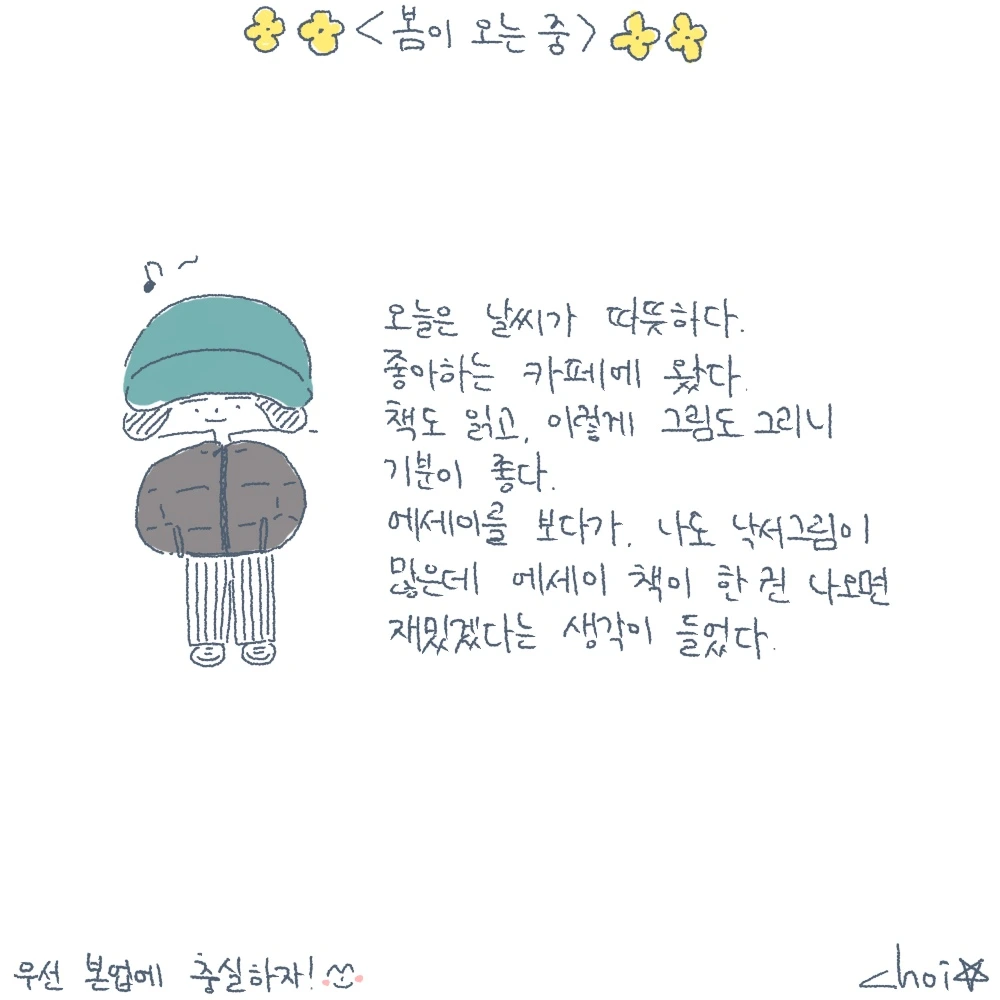 <봄이 오는 중>
오늘은 날씨가 따뜻하다.
좋아하는 카페에 왔다.
책도 읽고, 이렇게 그림도 그리니
기분이 좋다.
에세이를 보다가, 나도 낙서그림이
많은데 에세이 책이 한 권 나오면
재밌겠다는 생각이 들었다.
우선 본업에 충실하자!
choi